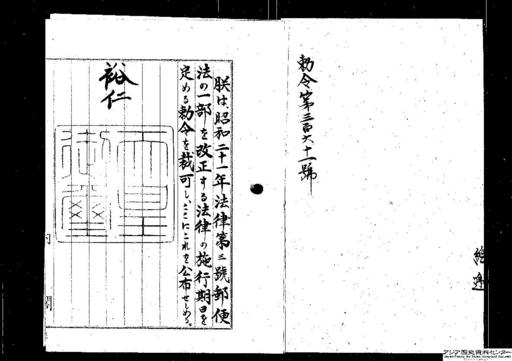 勅令第三百六十一號
朕は、昭和二十一年法律第三號郵便
法の一部を改正する法律の施行期日を
定める勅令を裁可し、ここにこれを公布せしめる。
裕仁
天皇
御璽
内閣
アジア歴史資料センター